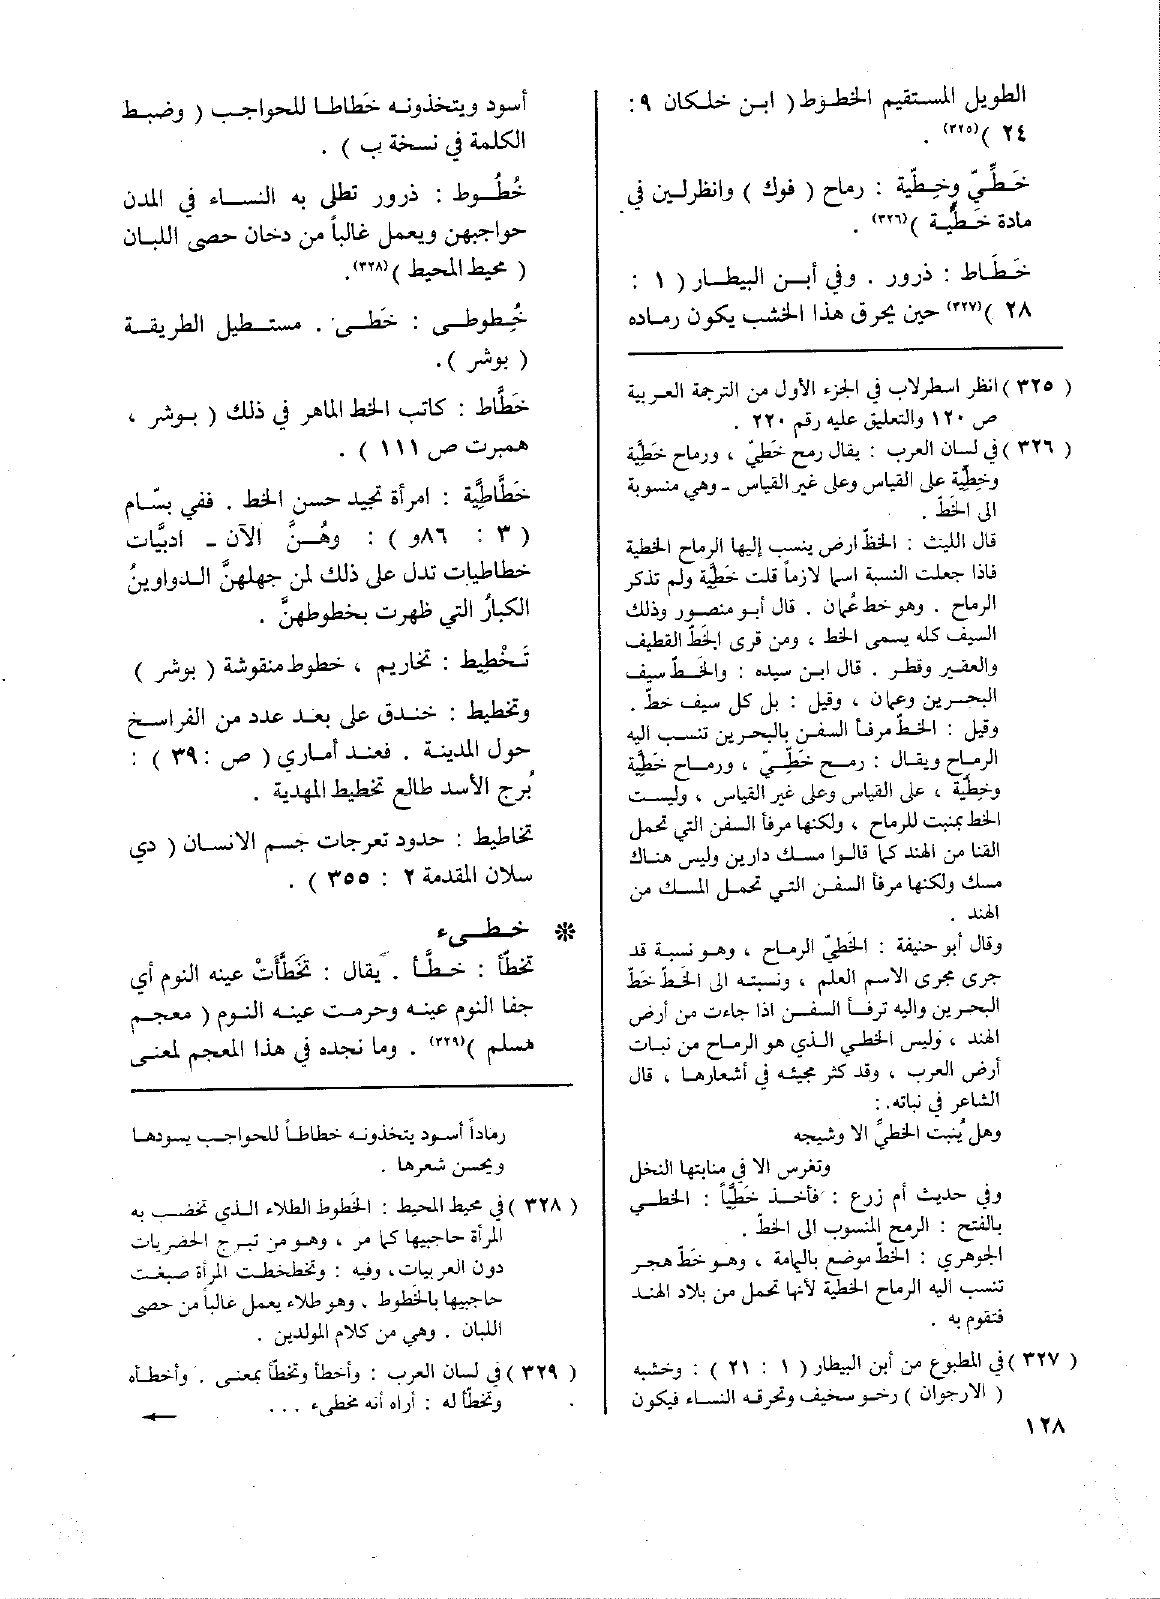 الطويل المستقيم الخطوط ( ابن خلكان ٩ :
٢٤ )(٣٢٥) .
خَطِّيّ وخِطّية : رماح ( فوك ) وانظرلين في
مادة خَطِّيَّة )(٣٢٦) .
خَطَاط : ذرور . وفي أبن البيطار ( ١ :
٢٨ )(٣٢٧) حين يحرق هذا الخشب يكون رماده
( ٣٢٥ ) انظر اسطرلاب في الجزء الأول من الترجمة العربية
ص ١٢٠ والتعليق عليه رقم ٢٢٠ .
( ٣٢٦ ) في لسان العرب : يقال رمح خَطيّ ، ورماح خَطِّية
وخِطِّية على القياس وعلى غير القياس ـ وهي منسوبة
الى الخَطّ .
قال الليث : الخطّ ارض ينسب إليها الرماح الخطية
فاذا جعلت النسبة اسما لازماً قلت خَطِّية ولم تذكر
الرماح . وهو خط عُمان . قال أبو منصور وذلك
السيف كله يسمى الخط ، ومن قرى الخَطّ القطيف
والعقير وقطر . قال ابن سيده : والخَطّ سيف
البحرين وعمان ، وقيل : بل كل سيف خطّ .
وقيل : الخطّ مرفأ السفن بالبحرين تنسب اليه
الرماح ويقال : رمح خَطِّيّ ، ورماح خَطِّية
وخِطِّية ، على القياس وعلى غير القياس ، وليست
الخط بمنبت للرماح ، ولكنها مرفأ السفن التي تحمل
القنا من الهند كما قالوا مسك دارين وليس هناك
مسك ولكنها مرفأ السفن التي تحمل المسك من
الهند .
وقال أبو حنيفة : الخَطيّ الرماح ، وهو نسبة قد
جرى مجرى الاسم العلم ، ونسبته الى الخَطّ خَطّ
البحرين واليه ترفأ السفن اذا جاءت من أرض
الهند ، وليس الخطي الذي هو الرماح من نبات
أرض العرب ، وقد كثر مجيئه في أشعارها ، قال
الشاعر في نباته :
وهل يُنبت الخطيَّ الا وشيجه
وتغرس الا في منابتها النخل
وفي حديث أم زرع : فأخذ خَطِّياً : الخطي
بالفتح : الرمح المنسوب الى الخطّ .
الجوهري : الخطّ موضع باليمامة ، وهو خَطّ هجر
تنسب اليه الرماح الخطية لأنها تحمل من بلاد الهند
فتقوم به .
( ٣٢٧ ) في المطبوع من أبن البيطار ( ١ : ٢١ ) : وخشبه
( الارجوان ) رخو سخيف وتحرقه النساء فيكون
١٢٨
أسود ويتخذونه خَطاطا للحواجب ( وضبط
الكلمة في نسخة ب ) .
خُطُوط : ذرور تطلى به النساء في المدن
حواجبهن ويعمل غالباً من دخان حصى اللبان
( محيط المحيط )(٣٢٨).
خُطوطى : خَطى . مستطيل الطريقة
( بوشر ).
خَطَّاط : كاتب الخط الماهر في ذلك ( بوشر ،
همبرت ص ١١١ ) .
خَطَّاطِيَّة : امرأة تجيد حسن الخط . ففي بسّام
( ٣ : ٨٦و ) : وهُنَّ الآن ـ ادبيَّات
خطاطيات تدل على ذلك لمن جهلهنَّ الدواوينُ
الكبارُ التي ظهرت بخطوطهنَّ .
تَخْطِيط : تخاريم ، خطوط منقوشة ( بوشر )
وتخطيط : خندق على بعد عدد من الفراسخ
حول المدينة . فعند أماري ( ص : ٣٩ ) :
بُرج الأسد طالع تخطيط المهدية .
تخاطيط : حدود تعرجات جسم الانسان ( دي
سلان المقدمة ٢ : ٣٥٥ ) .
❊ خطىء
تخطّأ : خطَّأ . يقال : تَخَطَّأَتْ عينه النوم أي
جفا النوم عينه وحرمت عينه النوم ( معجم
مسلم )(٣٢٩) . وما نجده في هذا المعجم لمعنى
رماداً أسود يتخذونه خطاطاً للحواجب يسودها
ويحسن شعرها .
( ٣٢٨ ) في محيط المحيط : الخَطوط الطلاء الذي تخضب به
المرأة حاجبيها كما مر ، وهو من تبرج الحضريات
دون العربيات ، وفيه : وتخطخطت المرأة صبغت
حاجبيها بالخطوط ، وهو طلاء يعمل غالباً من حصى
اللبان . وهي من كلام المولدين .
( ٣٢٩ ) في لسان العرب : وأخطأ وتخطّأ بمعنى . وأخطأه
وتخطّأ له : أراه أنه مخطىء ...